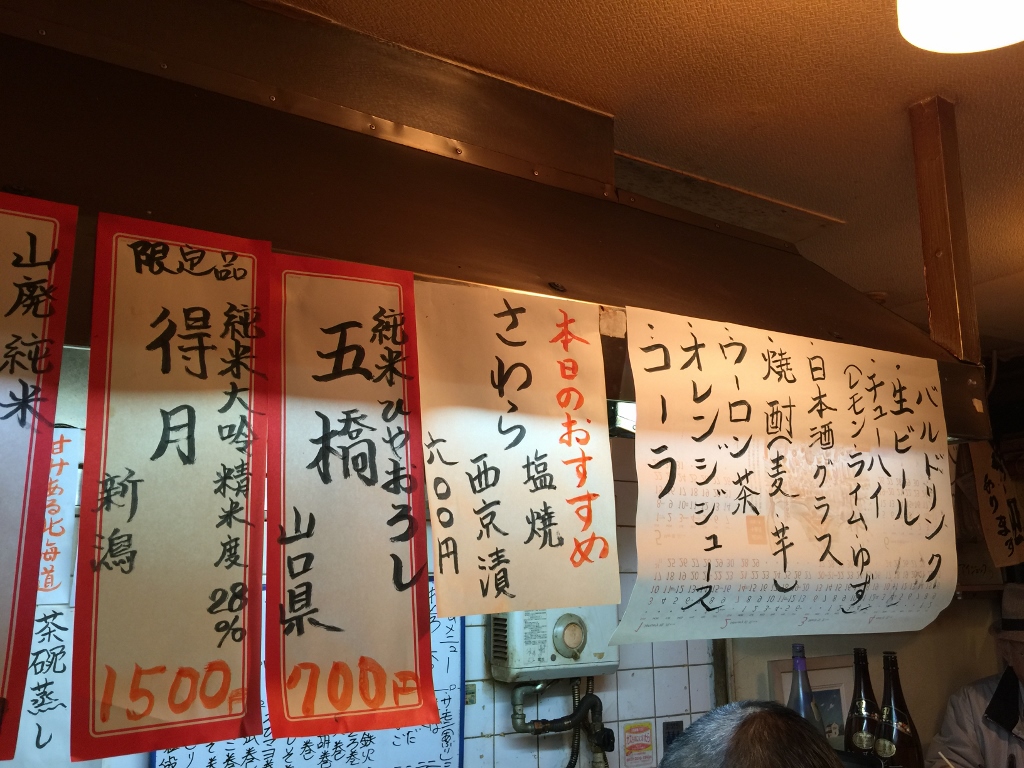 バルドリンク
・生ビール
・チューハイ
(レモン・ライム・ゆず)
・日本酒グラス
・焼酎(麦・芋)
・ウーロン茶
・オレンジジュース
・コーラ
本日のおすすめ
さわら
塩焼
西京漬
六〇〇円
純米ひやおろし
五橋
山口県
700円
限定品
純米大吟精米度28%
得月
新潟
1500円
山廃純米
甘けある北海道
茶碗蒸し